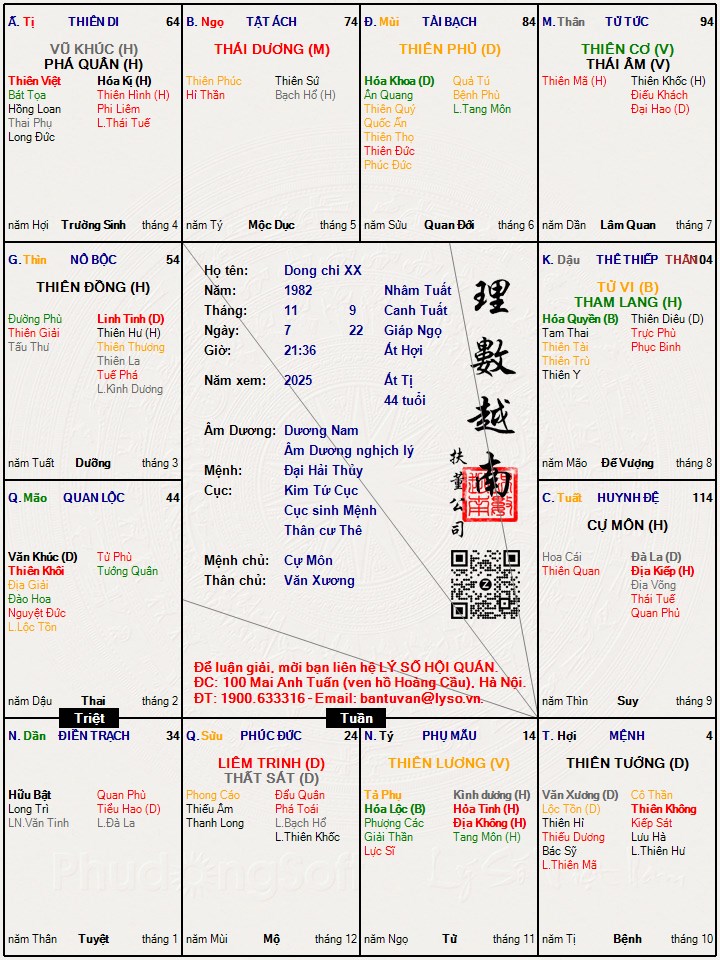 Ấ. Tị THIÊN DI 64
VŨ KHÚC (H)
PHÁ QUÂN (H)
Thiên Việt Hóa Kị (H)
Bát Tọa Thiên Hình (H)
Hồng Loan Phi Liêm
Thai Phụ L.Thái Tuế
Long Đức
năm Hợi Trường Sinh tháng 4
B. Ngọ TẬT ÁCH 74
THÁI DƯƠNG (M)
Thiên Phúc Thiên Sứ
Hỉ Thần Bạch Hổ (H)
năm Tý Mộc Dục tháng 5
Đ. Mùi TÀI BẠCH 84
THIÊN PHỦ (D)
Hóa Khoa (D) Quả Tú
Ân Quang Bệnh Phù
Thiên Quý L.Tang Môn
Quốc Ấn
Thiên Thọ
Thiên Đức
Phúc Đức
năm Sửu Quan Đới tháng 6
M. Thân TỬ TỨC 94
THIÊN CƠ (V)
THÁI ÂM (V)
Thiên Mã (H) Thiên Khốc (H)
Điếu Khách
Đại Hao (D)
năm Dần Lâm Quan tháng 7
G. Thìn NÔ BỘC 54
THIÊN ĐỒNG (H)
Đường Phù Linh Tinh (D)
Thiên Giải Thiên Hư (H)
Tấu Thư Thiên Thương
Thiên La
Tuế Phá
L.Kình Dương
năm Tuất Dưỡng tháng 3
Họ tên: Dong chi XX
Năm: 1982 Nhâm Tuất
Tháng: 11 9 Canh Tuất
Ngày: 7 22 Giáp Ngọ
Giờ: 21:36 Ất Hợi
Năm xem: 2025 Ất Tị
44 tuổi
Âm Dương: Dương Nam
Âm Dương nghịch lý
Mệnh: Đại Hải Thủy
Cục: Kim Tứ Cục
Cục sinh Mệnh
Thân cư Thê
Mệnh chủ: Cự Môn
Thân chủ: Văn Xương
理數越南
扶董公司
Để luận giải, mời bạn liên hệ LÝ SỐ HỘI QUÁN.
ĐC: 100 Mai Anh Tuấn (ven hồ Hoàng Cầu), Hà Nội.
ĐT: 1900.633316 - Email: bantuvan@lyso.vn.
K. Dậu THÊ THIẾP THÂN 104
TỬ VI (B)
THAM LANG (H)
Hóa Quyền (B) Thiên Diêu (D)
Tam Thai Trực Phù
Thiên Tài Phục Binh
Thiên Trù
Thiên Y
năm Mão Đế Vượng tháng 8
Q. Mão QUAN LỘC 44
Văn Khúc (D) Tử Phù
Thiên Khôi Tướng Quân
Địa Giải
Đào Hoa
Nguyệt Đức
L.Lộc Tồn
năm Dậu Thai tháng 2
C. Tuất HUYNH ĐỆ 114
CỰ MÔN (H)
Hoa Cái Đà La (D)
Thiên Quan Địa Kiếp (H)
Địa Võng
Thái Tuế
Quan Phủ
năm Thìn Suy tháng 9
Triệt
Tuần
N. Dần ĐIỀN TRẠCH 34
Hữu Bật Quan Phù
Long Trì Tiểu Hao (D)
LN.Văn Tinh L.Đà La
năm Thân Tuyệt tháng 1
Q. Sửu PHÚC ĐỨC 24
LIÊM TRINH (D)
THẤT SÁT (D)
Phong Cáo Đẩu Quân
Thiếu Âm Phá Toái
Thanh Long L.Bạch Hổ
L.Thiên Khốc
năm Mùi Mộ tháng 12
N. Tý PHỤ MẪU 14
THIÊN LƯƠNG (V)
Tả Phụ Kình dương (H)
Hóa Lộc (B) Hỏa Tinh (H)
Phượng Các Địa Không (H)
Giải Thần Tang Môn (H)
Lực Sĩ
năm Ngọ Tử tháng 11
T. Hợi MỆNH 4
THIÊN TƯỚNG (D)
Văn Xương (D) Cô Thần
Lộc Tồn (D) Thiên Không
Thiên Hỉ Kiếp Sát
Thiếu Dương Lưu Hà
Bác Sỹ L.Thiên Hư
L.Thiên Mã
năm Tị Bệnh tháng 10